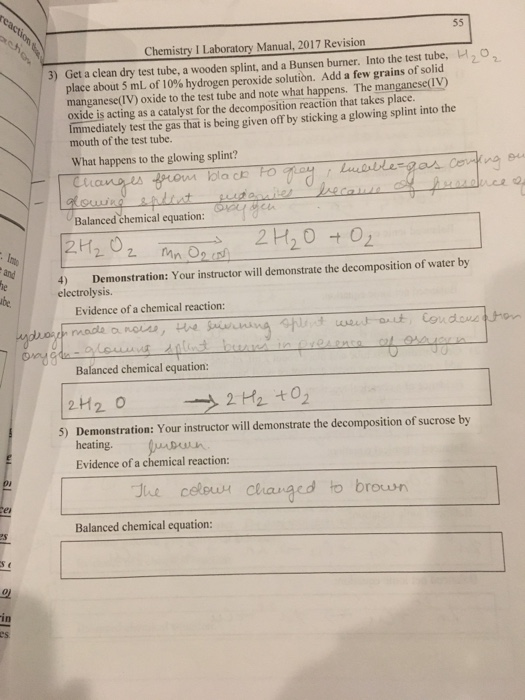 reaction that
55
Chemistry I Laboratory Manual, 2017 Revision
3) Get a clean dry test tube, a wooden splint, and a Bunsen burner. Into the test tube, H2O2
place about 5 mL of 10% hydrogen peroxide solution. Add a few grains of solid
manganese(IV) oxide to the test tube and note what happens. The manganese(IV)
oxide is acting as a catalyst for the decomposition reaction that takes place.
Immediately test the gas that is being given off by sticking a glowing splint into the
mouth of the test tube.
What happens to the glowing splint?
Changes from black to grey, bubble=gas coming ou
glowing splint because of presence of
oxygen
Balanced chemical equation:
2H2O2 → MnO2 2H2O + O2
4) Demonstration: Your instructor will demonstrate the decomposition of water by
electrolysis.
Evidence of a chemical reaction:
hydrogen made a noise, the burning splint went out,
oxygen - glowing splint burns in presence of oxygen
Balanced chemical equation:
2H2O → 2H2 + O2
5) Demonstration: Your instructor will demonstrate the decomposition of sucrose by
heating.
Evidence of a chemical reaction:
The colour changed to brown
Balanced chemical equation: